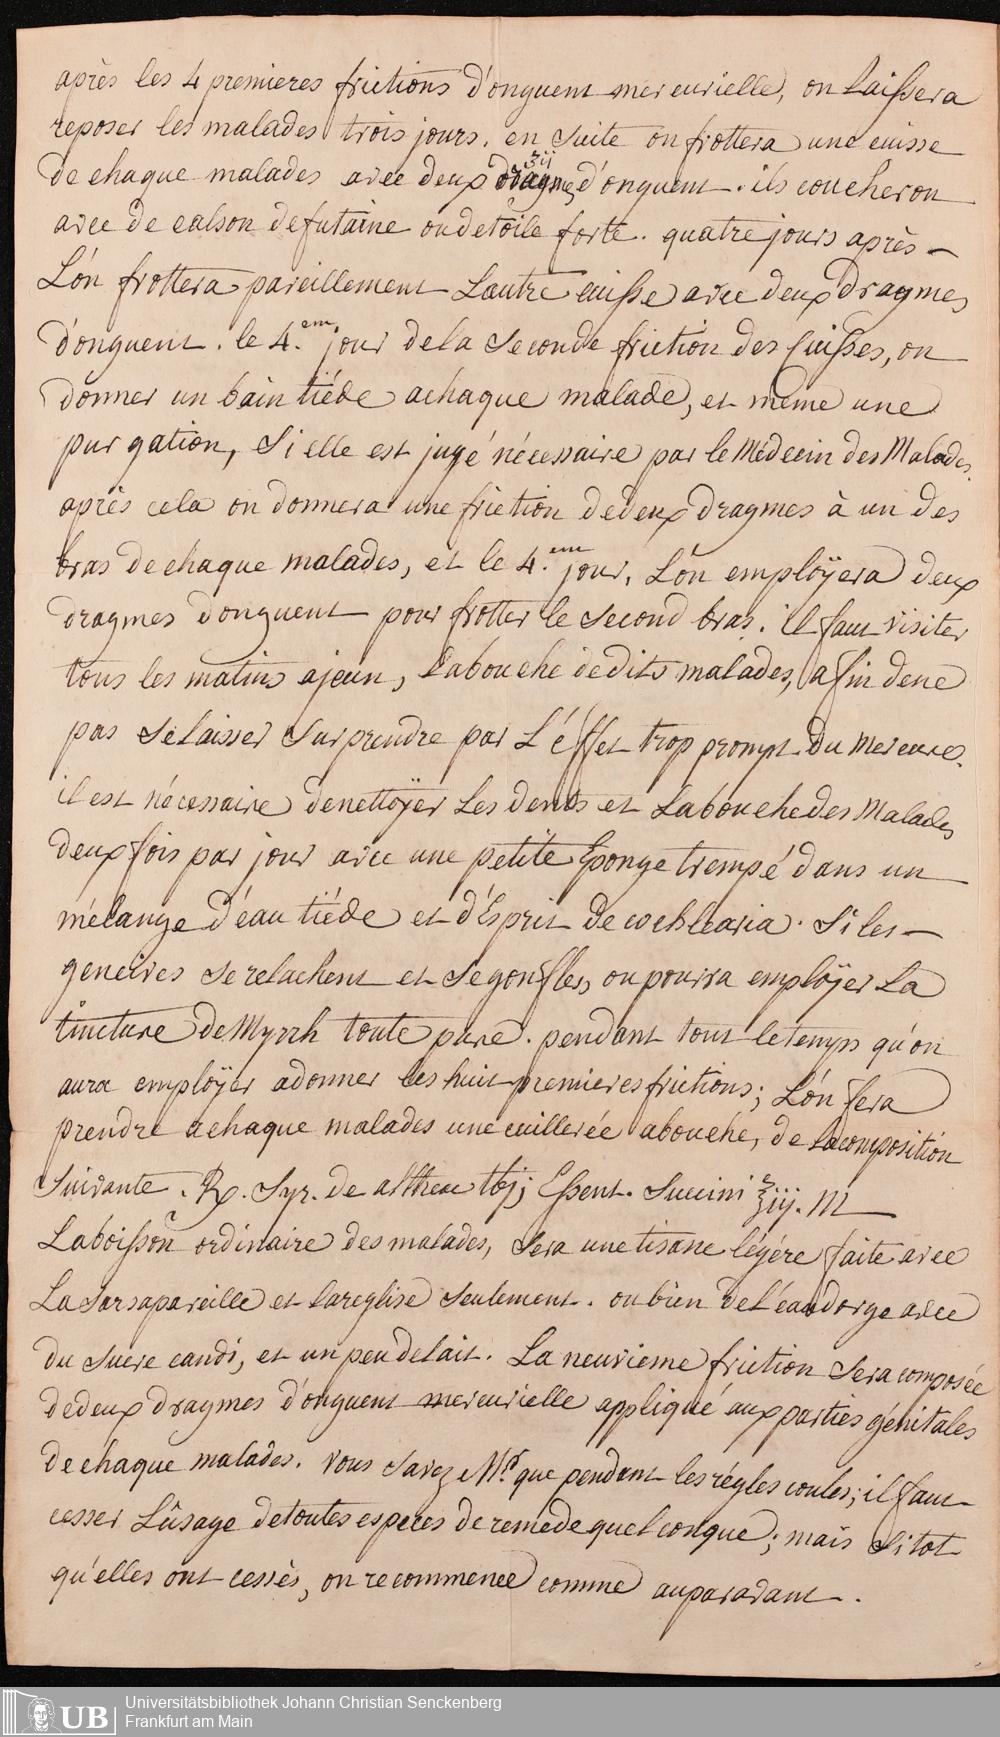 après les 4 premieres frictions d'onguent mercurielle, on laissera
reposer les malades trois jours. en suite on frottera une cuisse
de chaque malades avec deux dragmes ʒij d'onguent. ils coucheron
avec de calson de futaine ou de toile forte. quatre jours après
L'on frottera pareillement L'autre cuisse avec deux dragmes
d'onguent. le 4.em jour de la seconde friction des cuisses, on
donner un bain tiéde a chaque malade, et même une
purgation, si elle est jugé nécessaire par le Médecin des Malades.
après cela on donnera une friction de deux dragmes à un des
bras de chaque malades, et le 4.em jour, L'on employera deux
dragmes d'onguent pour frotter le second bras. il faut visiter
tous les matins a jeun, la bouche de dits malades, afin de ne
pas se laisser surprendre par L'éffet trop prompt du mercure.
il est nécessaire de nettoÿer Les dents et La bouche des Malades
deux fois par jour avec une petite Eponge trempé dans un
mélange d'éau tiéde et d'Esprit de cochlearia. si les
gencives se relachent et se gonfles, on pourra emploÿer La
tincture de Myrrh toute pure. pendant tout le temps qu'on
aura emploÿer a donner les huit premieres frictions; L'on fera
prendre a chaque malades une cuillerée a bouche, de la composition
suivante. Rp. Syr. de althea lbj; Essent. Succini ʒiij. M
La boisson ordinaire des malades, sera une tisane légére faite avec
La sarsapareille et la reglise seulement. ou bien de l'eau d'orge avec
du sucre candi, et un peu de lait. La neuvieme friction sera composée
de deux dragmes d'onguent mercurielle appliqué aux parties génitales
de chaque malades. vous savez Mr. que pendant les régles coules; il faut
cesser L'ûsage de toutes especes de remede quelconque; mais sitot
qu'elles ont cessès, on recommence comme auparavant.
UB
Universitätsbibliothek Johann Christian Senckenberg
Frankfurt am Main